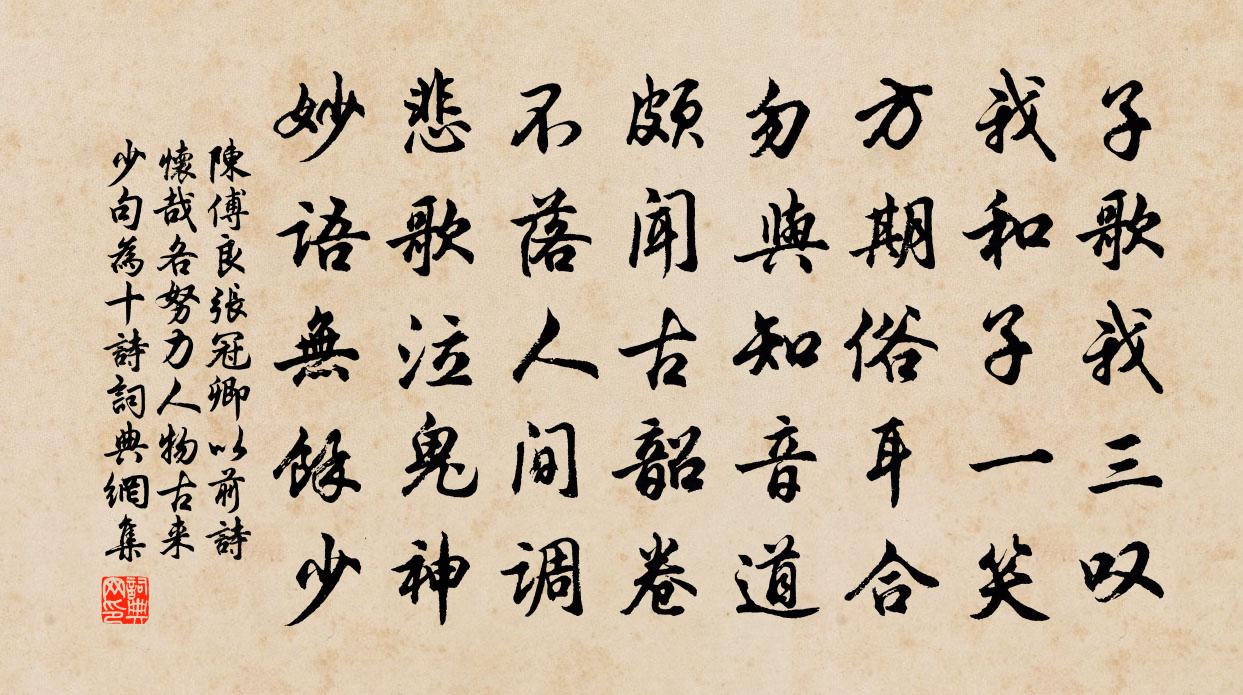 子歌我三叹
我和子一笑
方期俗耳合
勿與知音道
頗闻古韶卷
不落人间调
悲歌泣鬼神
妙语無餘少
陳傅良張冠卿以前詩
懷哉各努力人物古来
少句為十詩詞典網集
詞典网印